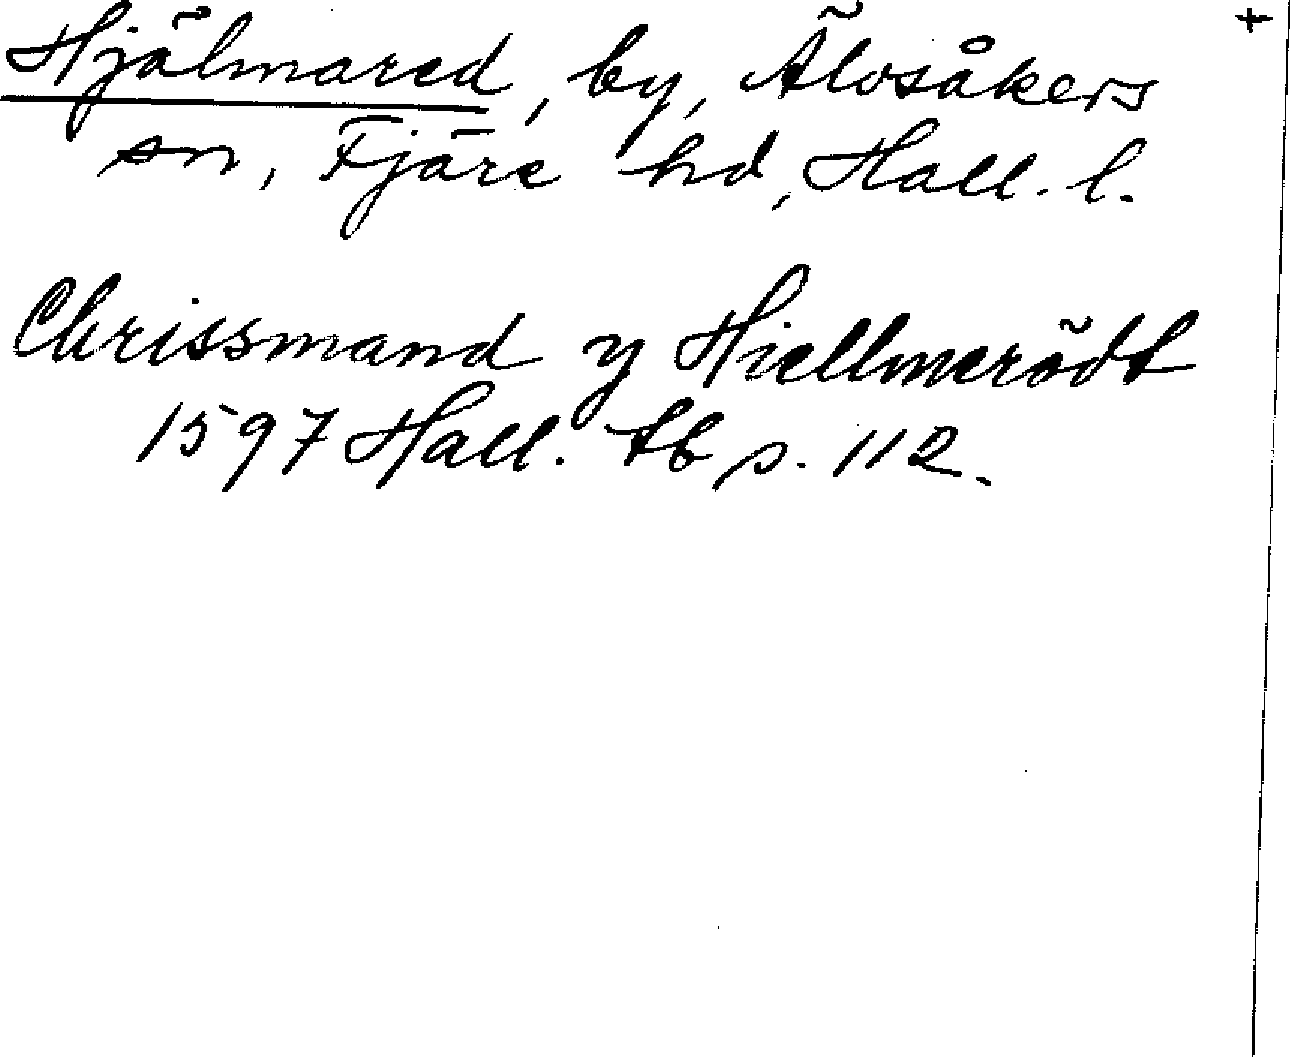 +
Hjälmared, by, Älvsåkers
sn, Fjäre hd, Hall. l.
Chrissmand y Hiellmerödt
1597 Hall. tb s. 112.